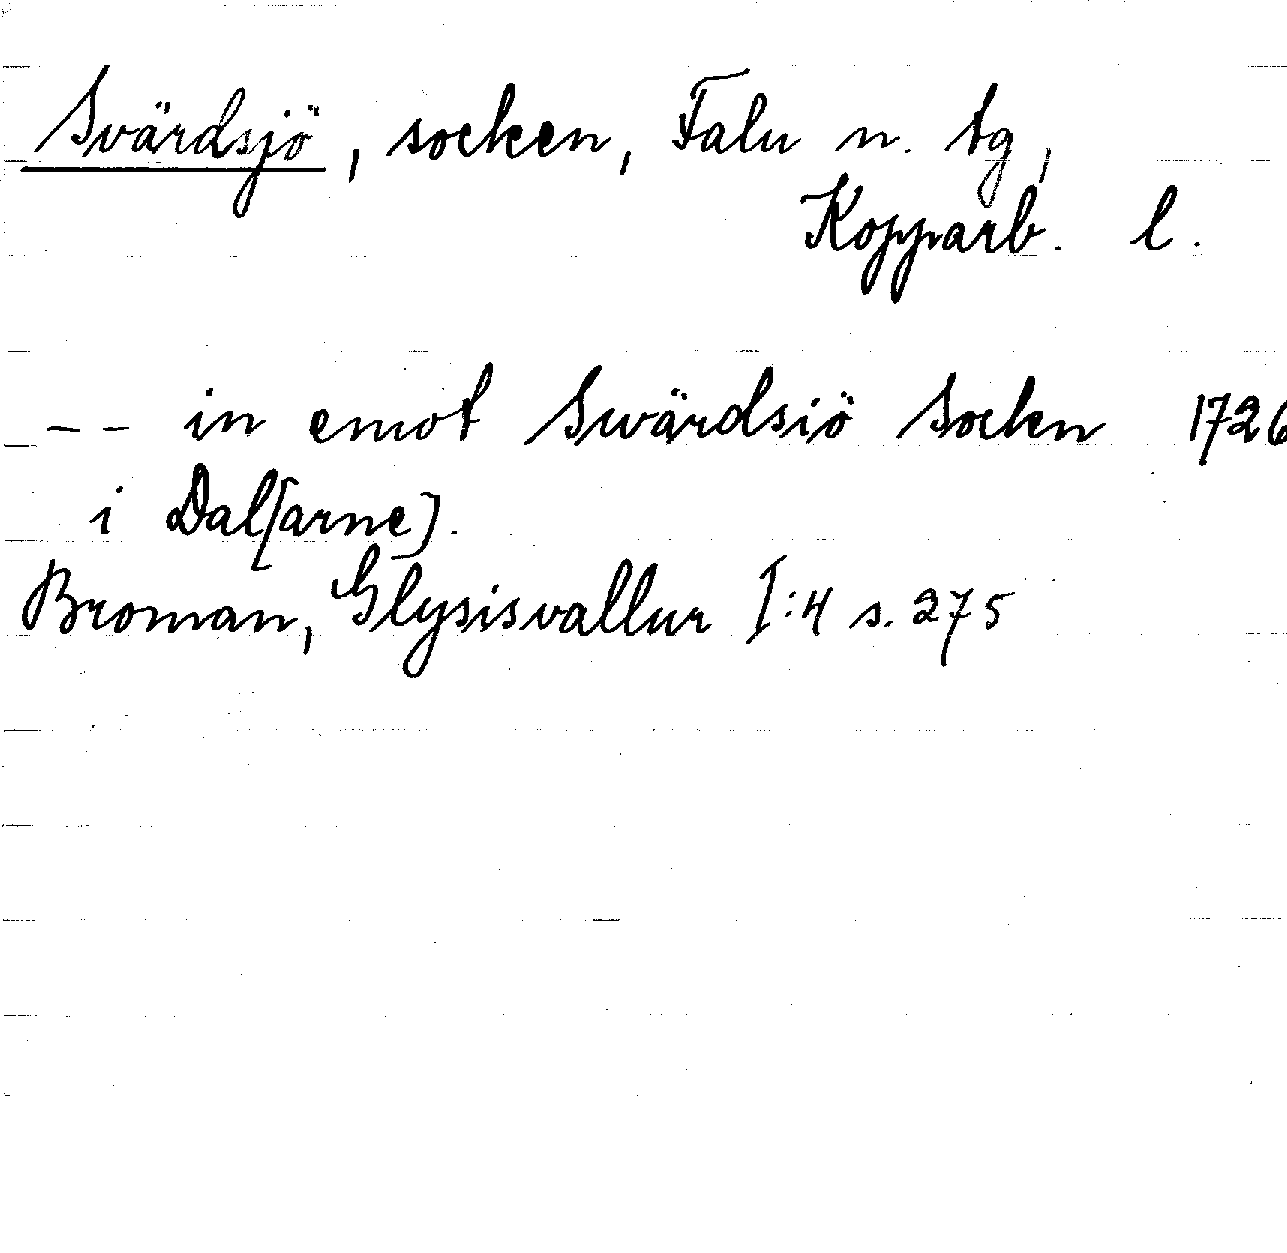 Svärdsjö, socken, Falu n. tg,
Kopparb. l.
_ _ _ in emot Swärdsiö Sockn 1726
i Dal[arne].
Broman, Glysisvallur I:4 s. 275